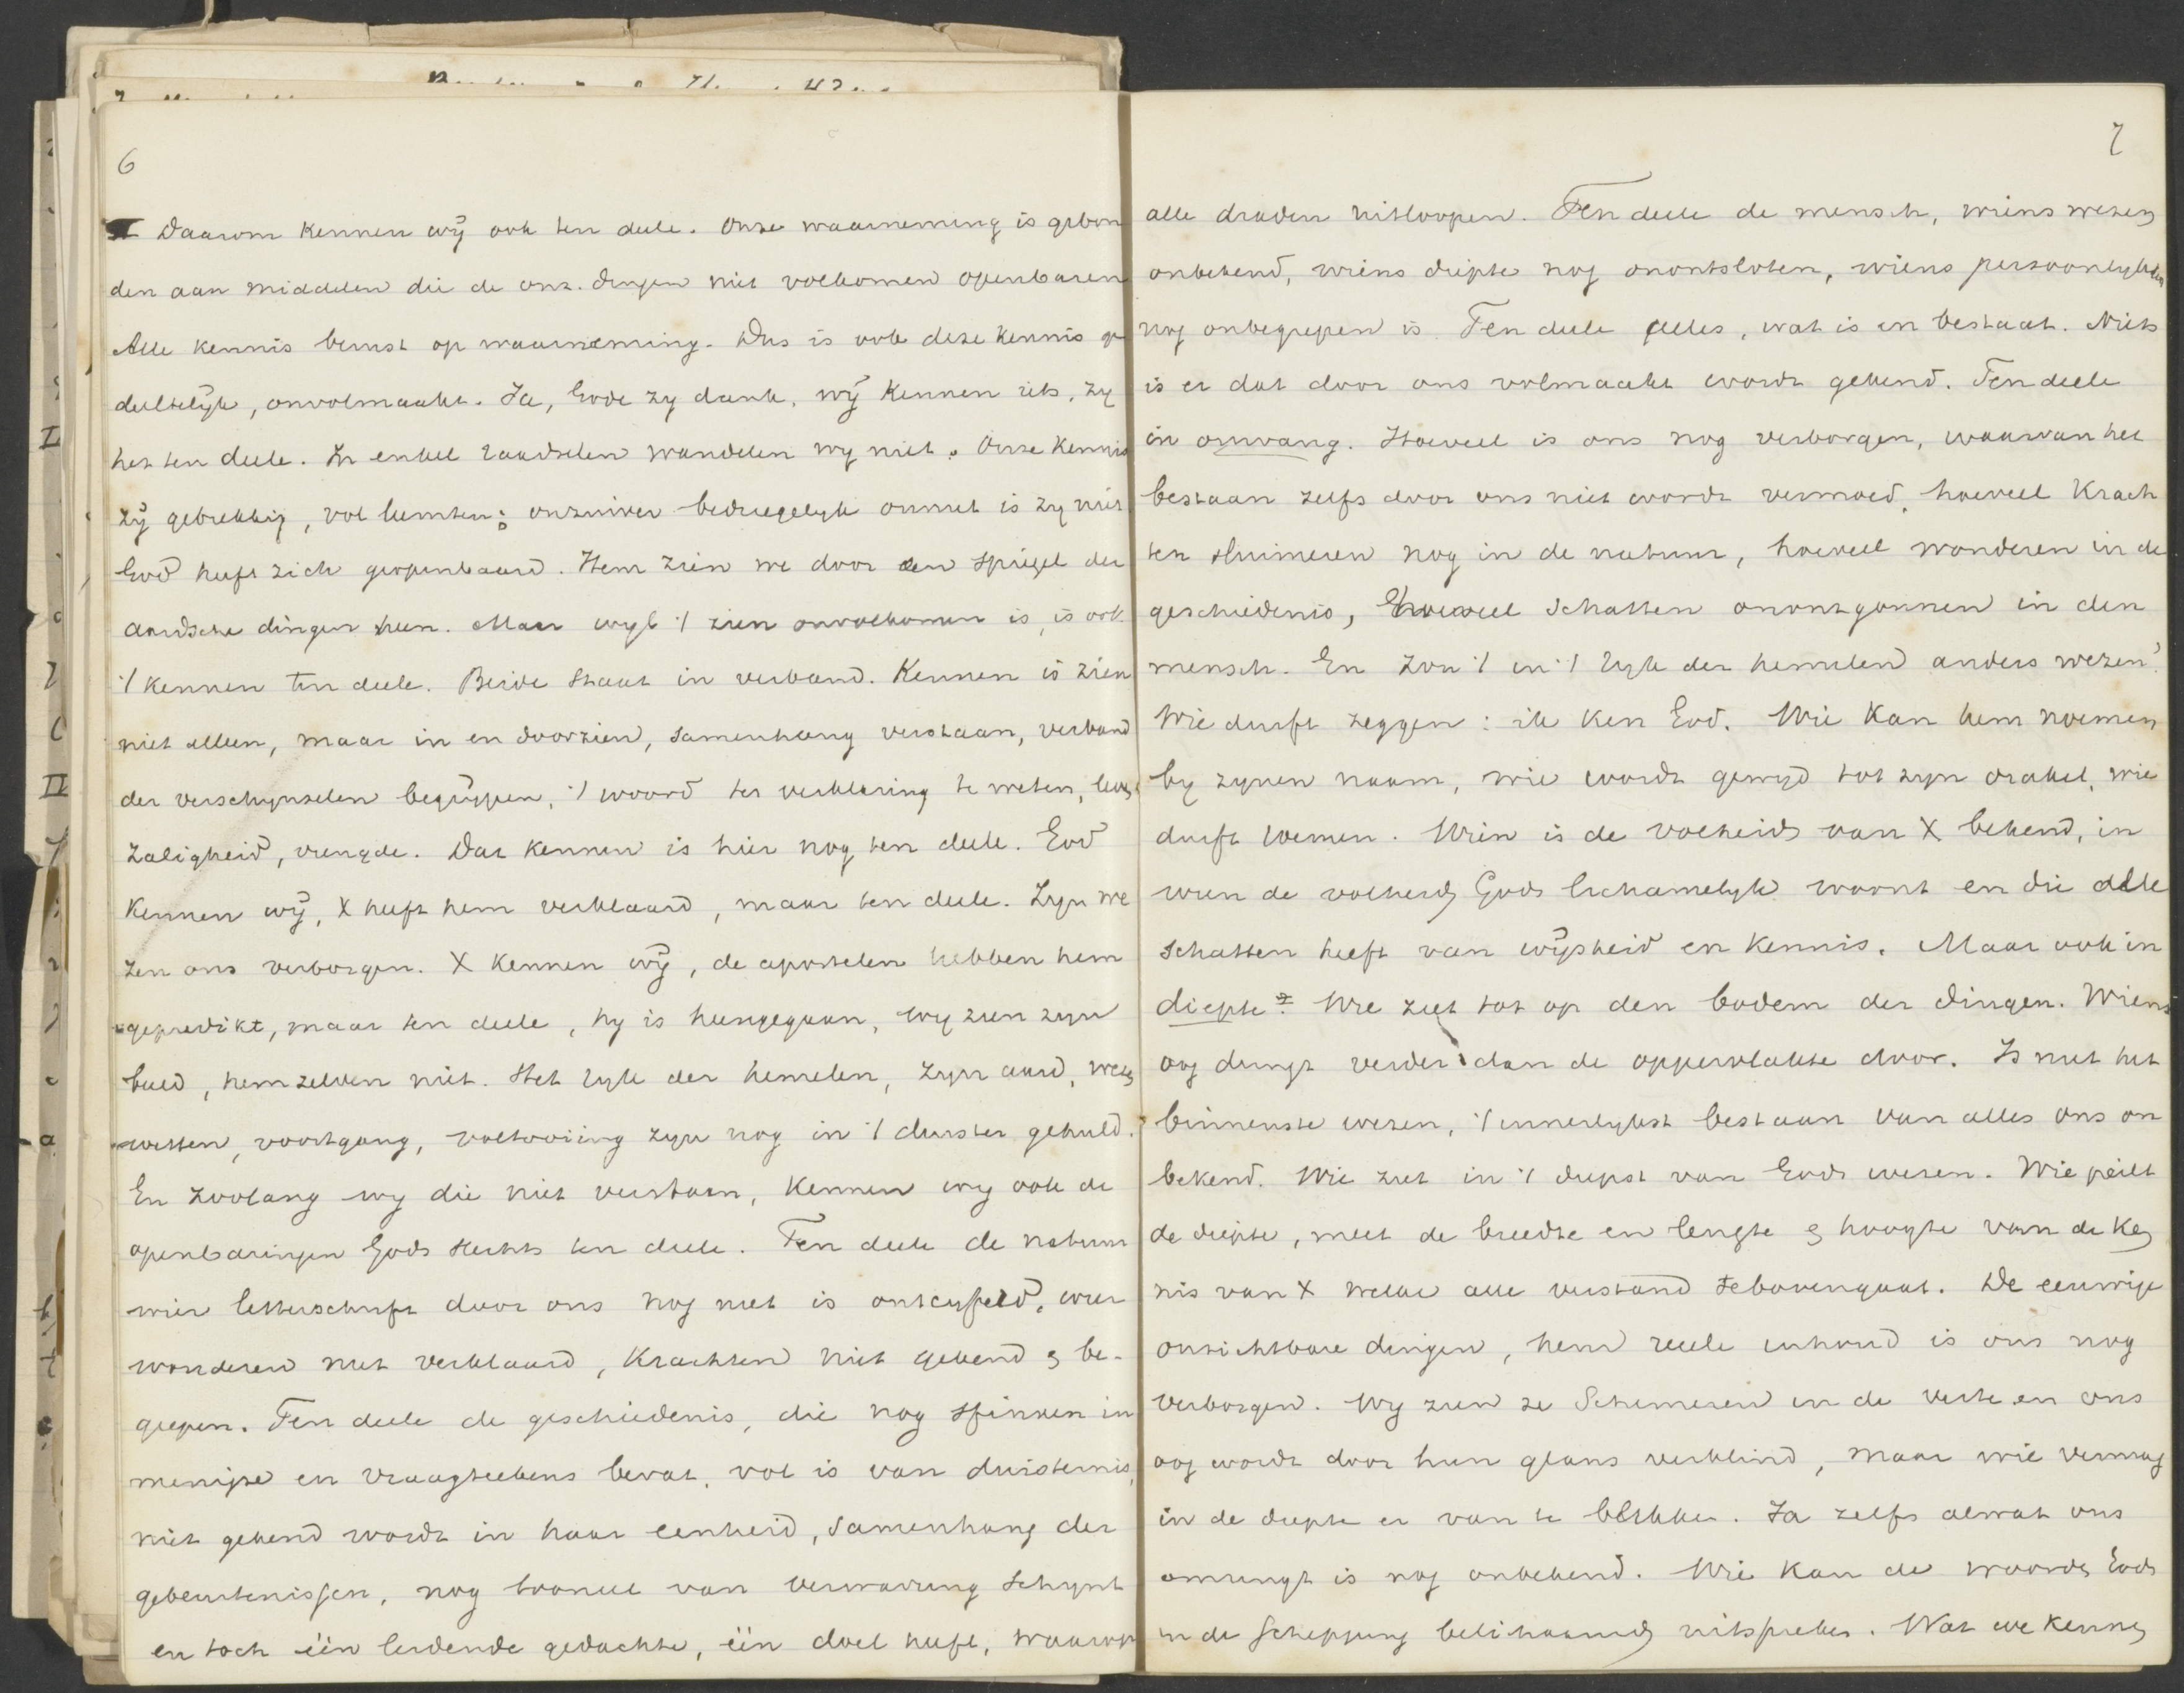 6
Daarom kennen wij ook ten deele. Onze waarneming is gebon
den aan middelen die de onz. dingen niet volkomen openbaren
Alle kennis berust op waarneming. Dus is ook deze kennis ge
deeltelijk, onvolmaakt. Ja, Gode zy dank, wij kennen iets, zy
het ten deele. In enkel raadselen wandelen wy niet. Onze kennis
zij gebrekkig, vol leemten; onzuiver bedriegelyk onnut is zy niet
God heeft zich geopenbaard. Hem zien we door den spiegel der
aardsche dingen heen. Maar wyl 't zien onvolkomen is, is ook
't kennen ten deele. Beide staat in verband. Kennen is zien
niet alleen, maar in en doorzien, samenhang verstaan, verband
der verschynselen begrijpen, 't woord ter verklaring te weten, leven
zaligheid, vreugde. Dat kennen is hier nog ten deele. God
kennen wij, X heeft hem verklaard, maar ten deele. Zyn we
zen ons verborgen. X kennen wij, de apostelen hebben hem
gepredikt, maar ten deele, hy is heengegaan, wy zien zyn
beeld, hemzelven niet. Het ryk der hemelen, zyn aard, wezen
wetten, voortgang, voltooiing zyn nog in 't duister gehuld.
En zoolang wy die niet verstaan, kennen wy ook de
openbaringen Gods slechts ten deele. Ten deele de natuur
wier letterschrift door ons nog niet is ontcyferd, wier
wonderen niet verklaard, krachten niet gekend & be-
grepen. Ten deele de geschiedenis, die nog sfinxen in
menigte en vraagteekens bevat, vol is van duisternis,
niet gekend wordt in haar eenheid, samenhang der
gebeurtenissen, nog tooneel van verwarring schynt
en toch één leidende gedachte, één doel heeft, waarop
7
alle draden uitloopen. Ten deele de mensch, wiens wezen
onbekend, wiens diepte nog onontsloten, wiens persoonlykheid
nog onbegrepen is. Ten deele alles, wat is en bestaat. Niets
is er dat door ons volmaakt wordt gekend. Ten deele
in omvang. Hoeveel is ons nog verborgen, waarvan het
bestaan zelfs door ons niet wordt vermoed, hoeveel krach
ten sluimeren nog in de natuur, hoeveel wonderen in de
geschiedenis, hoeveel schatten onontgonnen in den
mensch. En zou 't in 't ryk der hemelen anders wezen?
Wie durft zeggen: ik ken God. Wie kan hem noemen
by zynen naam, wie wordt gewyd tot zyn orakel, wie
durft . Wien is de volheid van X bekend, in
wien de volheid Gods lichamelyk woont en die alle
schatten heeft van wijsheid en kennis. Maar ook in
diepte. Wie ziet tot op den bodem der dingen. Wiens
oog dringt verder dan de oppervlakte door. Is niet het
binnenste wezen, 't innerlykst bestaan van alles ons on
bekend. Wie ziet in 't diepst van Gods wezen. Wie peilt
de diepte, meet de breedte en lengte & hoogte van de ken
nis van X welke alle verstand tebovengaat. De eeuwige
onzichtbare dingen, hem reele inhoud is ons nog
verborgen. Wy zien ze schemeren in de verte en ons
oog wordt door hun glans verblind, maar wie vermag
in de diepte er van te blikken. Ja zelfs alwat ons
omringt is nog onbekend. Wie kan de woorden Gods
in de schepping belichaamd uitspreken. Wat we kennen